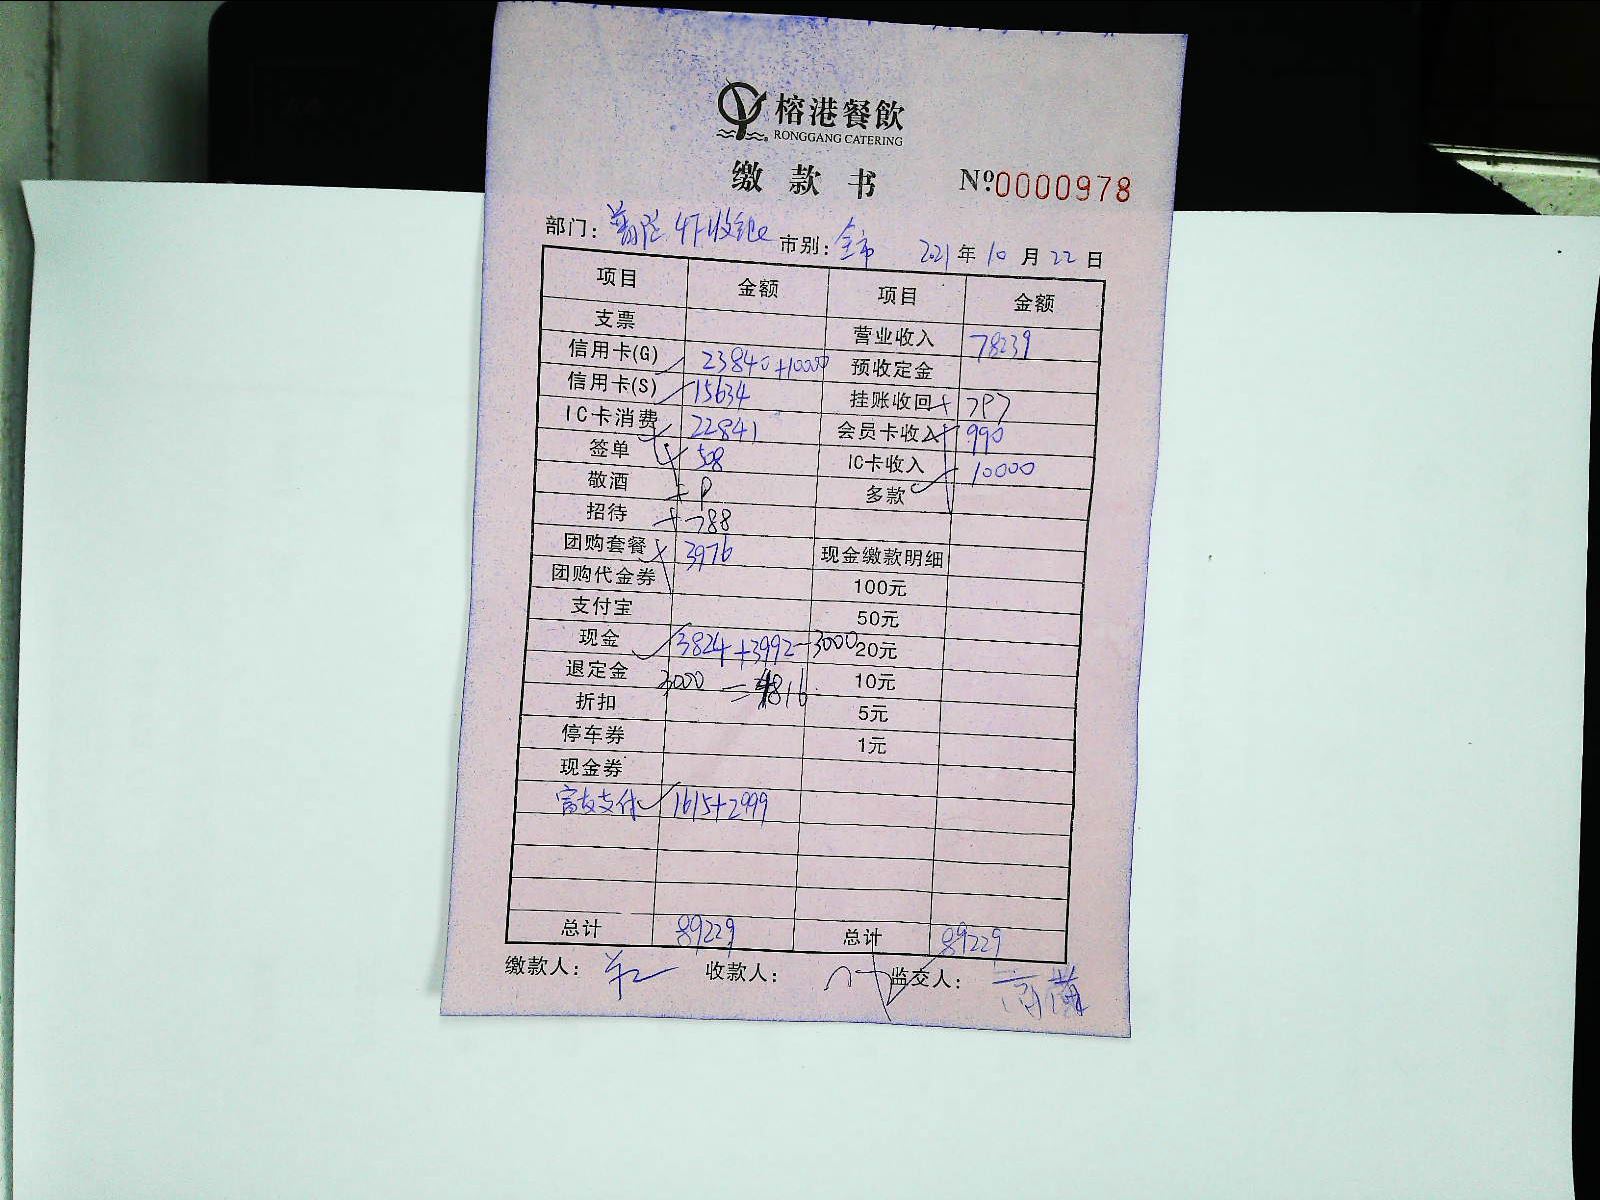 榕港餐飲
RONGGANG CATERING
缴款书 Nº0000978
部门: 普陀4F收银 市别: 全市 2021年10月22日
项目 金额 项目 金额
支票 营业收入 78239
信用卡(G) 23840+10000 预收定金
信用卡(S) 15634 挂账收回
IC卡消费 22841 会员卡收入 990
签单 508 IC卡收入 10000
敬酒 多款
招待 788
团购套餐 3976 现金缴款明细
团购代金券 100元
支付宝 50元
现金 3824+3992-3000 20元
退定金 3000 =4816 10元
折扣 5元
停车券 1元
现金券
富友支付 1615+2999
总计 89229 总计 89229
缴款人: 收款人: 监交人: